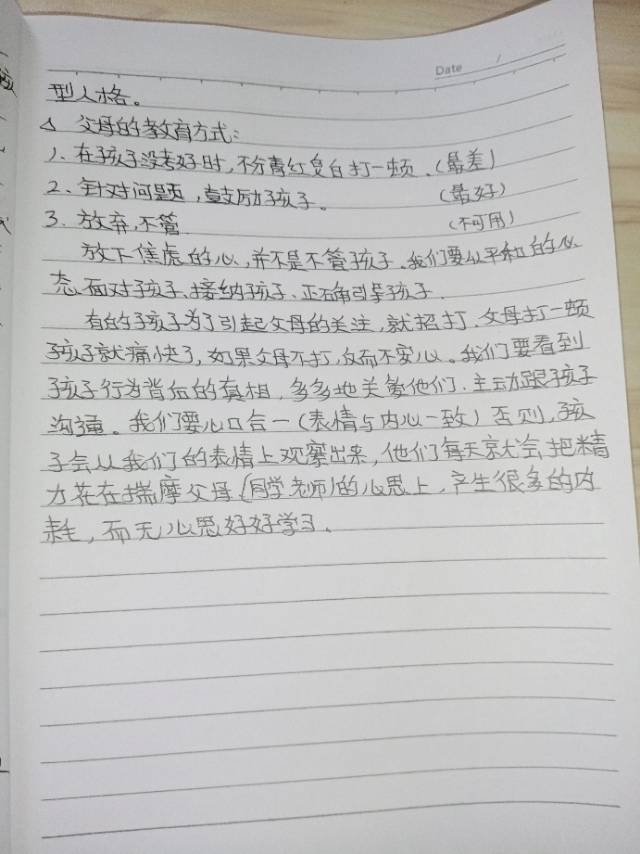 Date /
型人格。
△ 父母的教育方式:
1、在孩子没考好时,不分青红皂白打一顿.(最差)
2、针对问题,鼓励孩子。(最好)
3、放弃,不管.(不可用)
放下焦虑的心,并不是不管孩子.我们要以平和的心
态面对孩子、接纳孩子、正确引导孩子.
有的孩子为了引起父母的关注,就招打.父母打一顿
孩子就痛快了,如果父母不打,反而不安心。我们要看到
孩子行为背后的真相,多多地关爱他们.主动跟孩子
沟通。我们要心口合一(表情与内心一致)否则,孩
子会从我们的表情上观察出来,他们每天就会把精
力花在揣摩父母(同学老师)的心思上,产生很多的内
耗,而无心思好好学习.